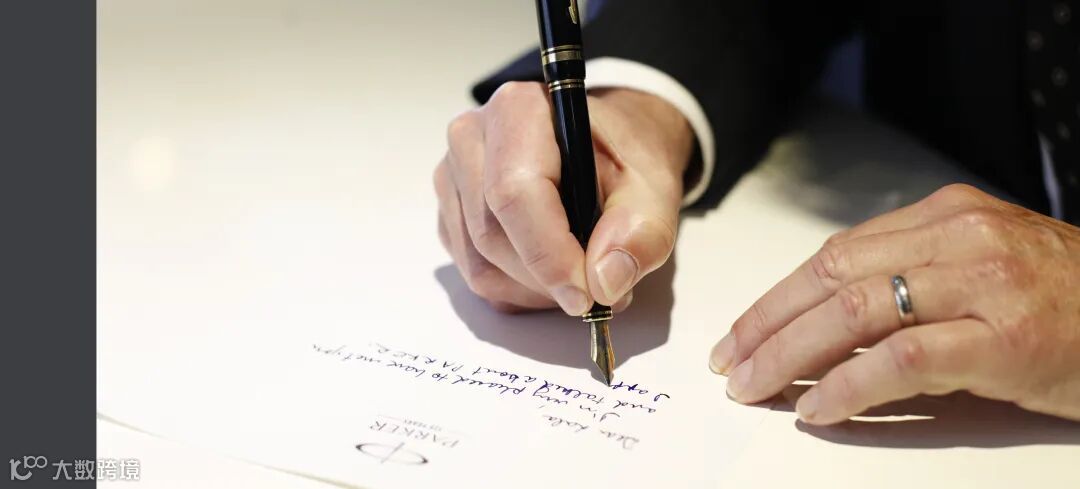 PARKER
Dear Lala,
I'm very pleased to have met you
and talked about PARKER.
I app
大数跨境